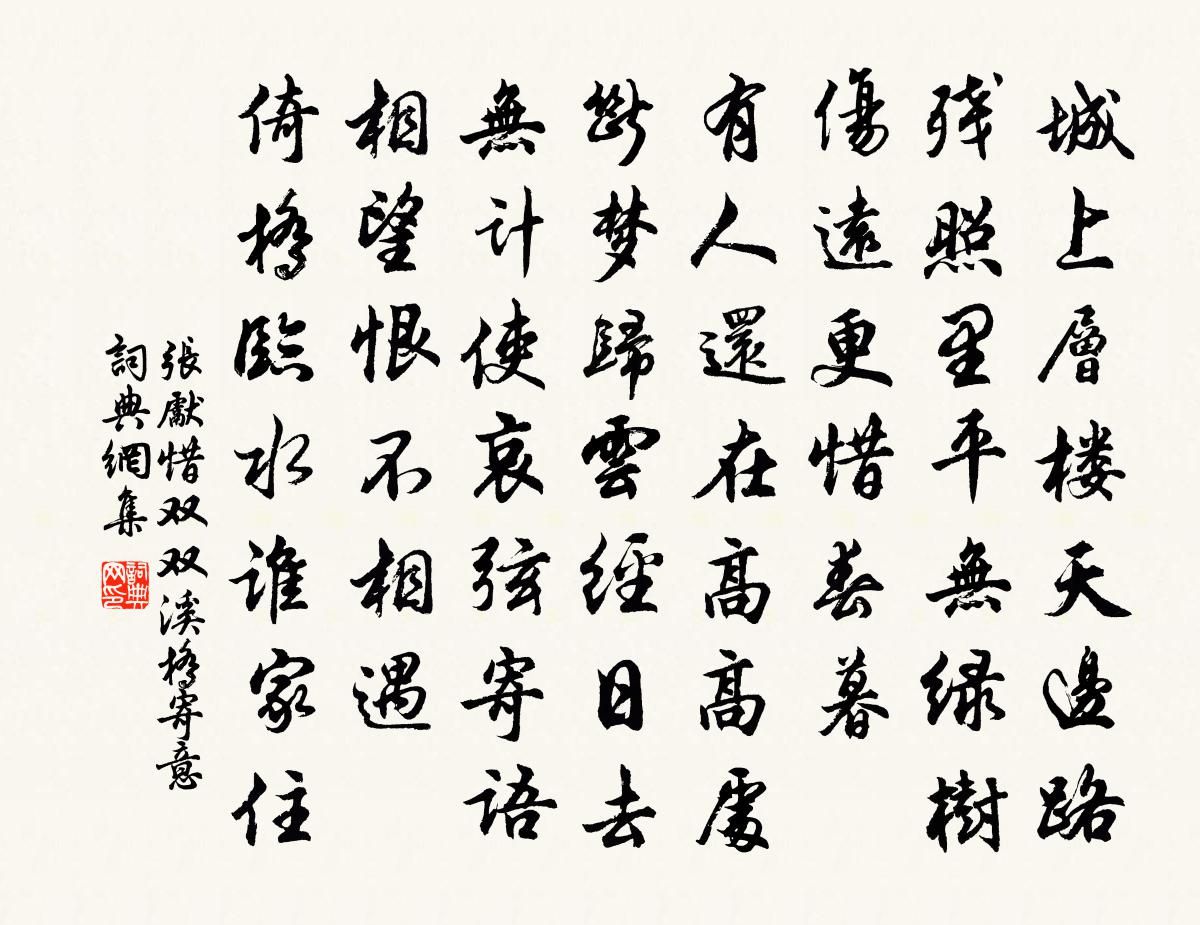 城上層楼天邊路
残照里平無緑樹
傷遠更惜春暮
有人還在高高處
斷梦歸雲經日去
無计使哀弦寄语
相望恨不相遇
倚橋臨水誰家住
張獻惜双双溪橋寄意
詞典網集
詞典网印